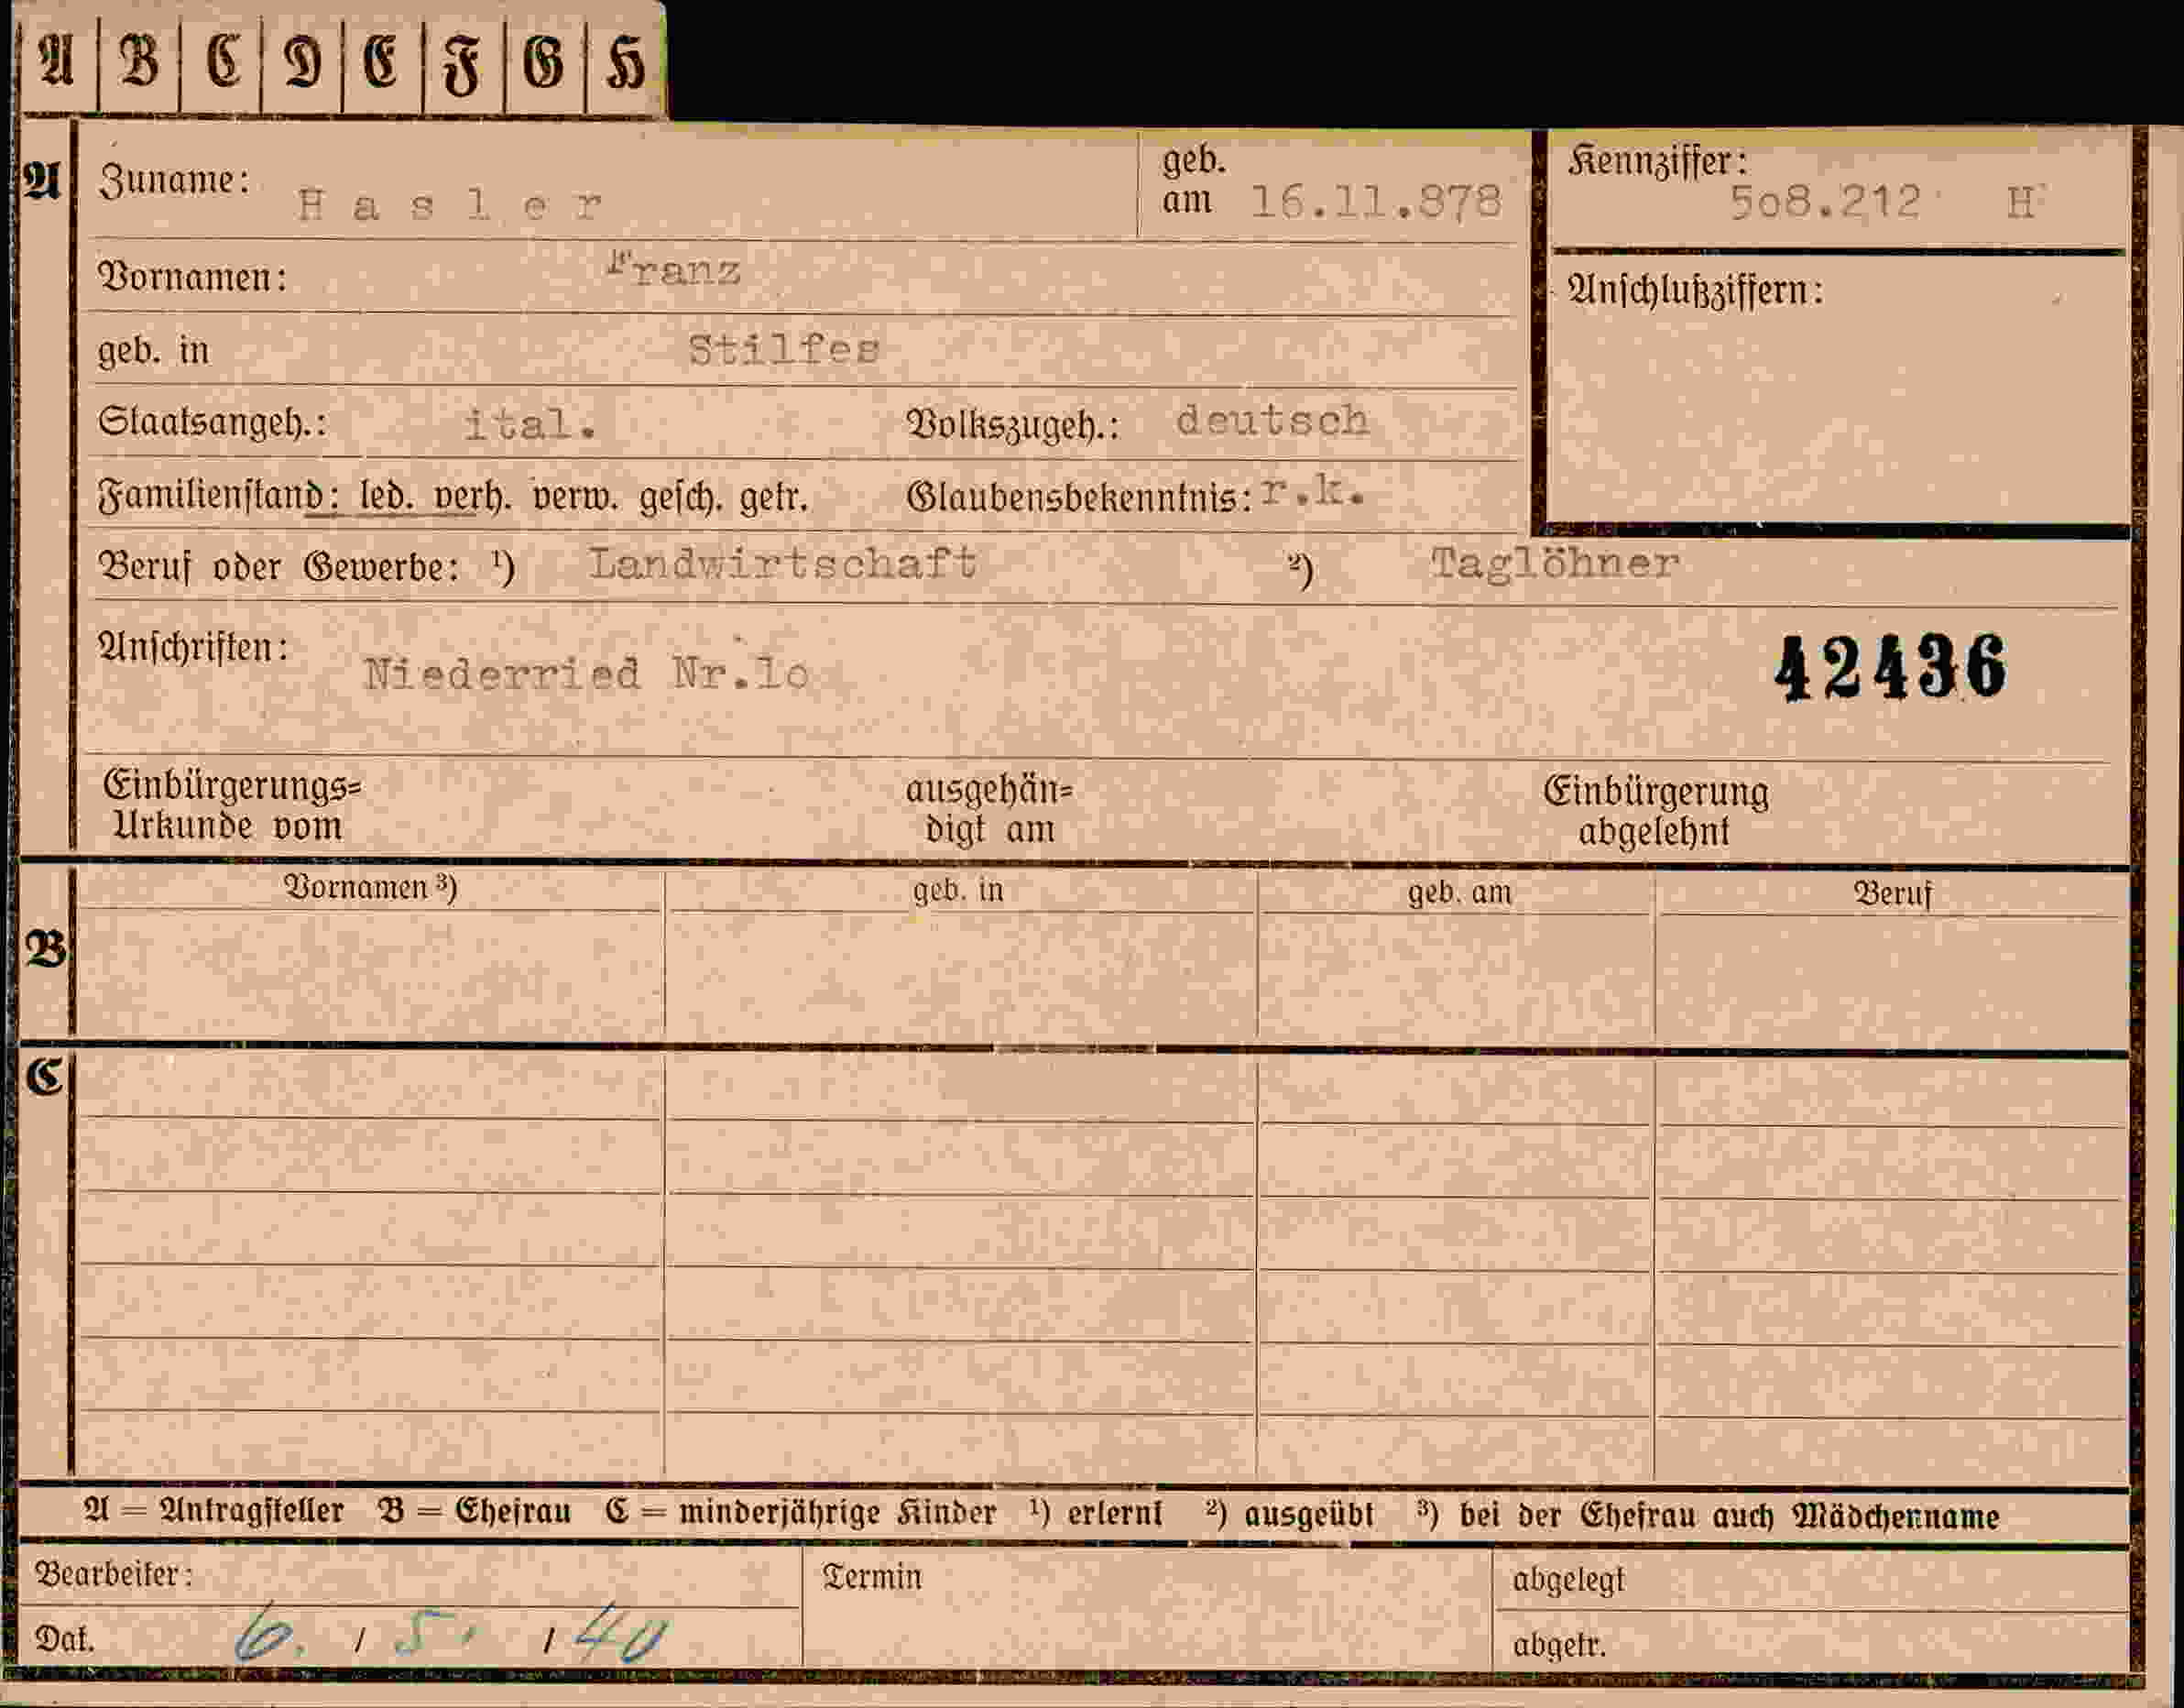 A B C D E F G H
A Zuname: Hasler geb. am 16.11.878 Kennziffer: 5o8.212 H
Vornamen: Franz
Anschlußziffern:
geb. in Stilfes
Staatsangeh.: ital. Volkszugeh.: deutsch
Familienstand: led. verh. verw. gesch. getr. Glaubensbekenntnis: r.k.
Beruf oder Gewerbe: ¹) Landwirtschaft ²) Taglöhner
Anschriften: Niederried Nr.lo 42436
Einbürgerungs= Urkunde vom ausgehän= digt am Einbürgerung abgelehnt
B Vornamen ³) geb. in geb. am Beruf
C
A = Antragsteller B = Ehefrau C = minderjährige Kinder ¹) erlernt ²) ausgeübt ³) bei der Ehefrau auch Mädchenname
Bearbeiter: Termin abgelegt
Dat. 6. / 5. / 40 abgetr.